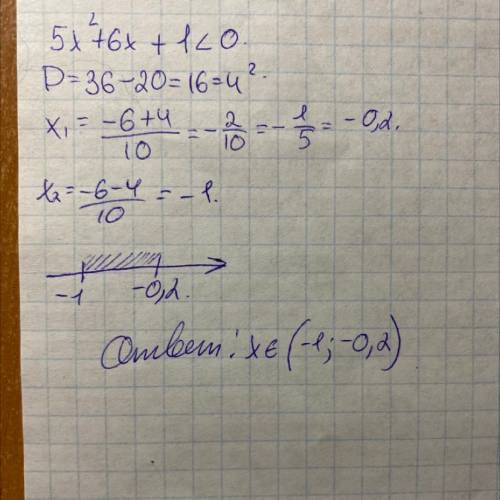 5x²+6x+1<0.
D=36-20=16=4².
x₁=(-6+4)/10=-2/10=-1/5=-0,2.
x₂=(-6-4)/10=-1.
-1 -0,2.
Ответ: x∈(-1;-0,2)